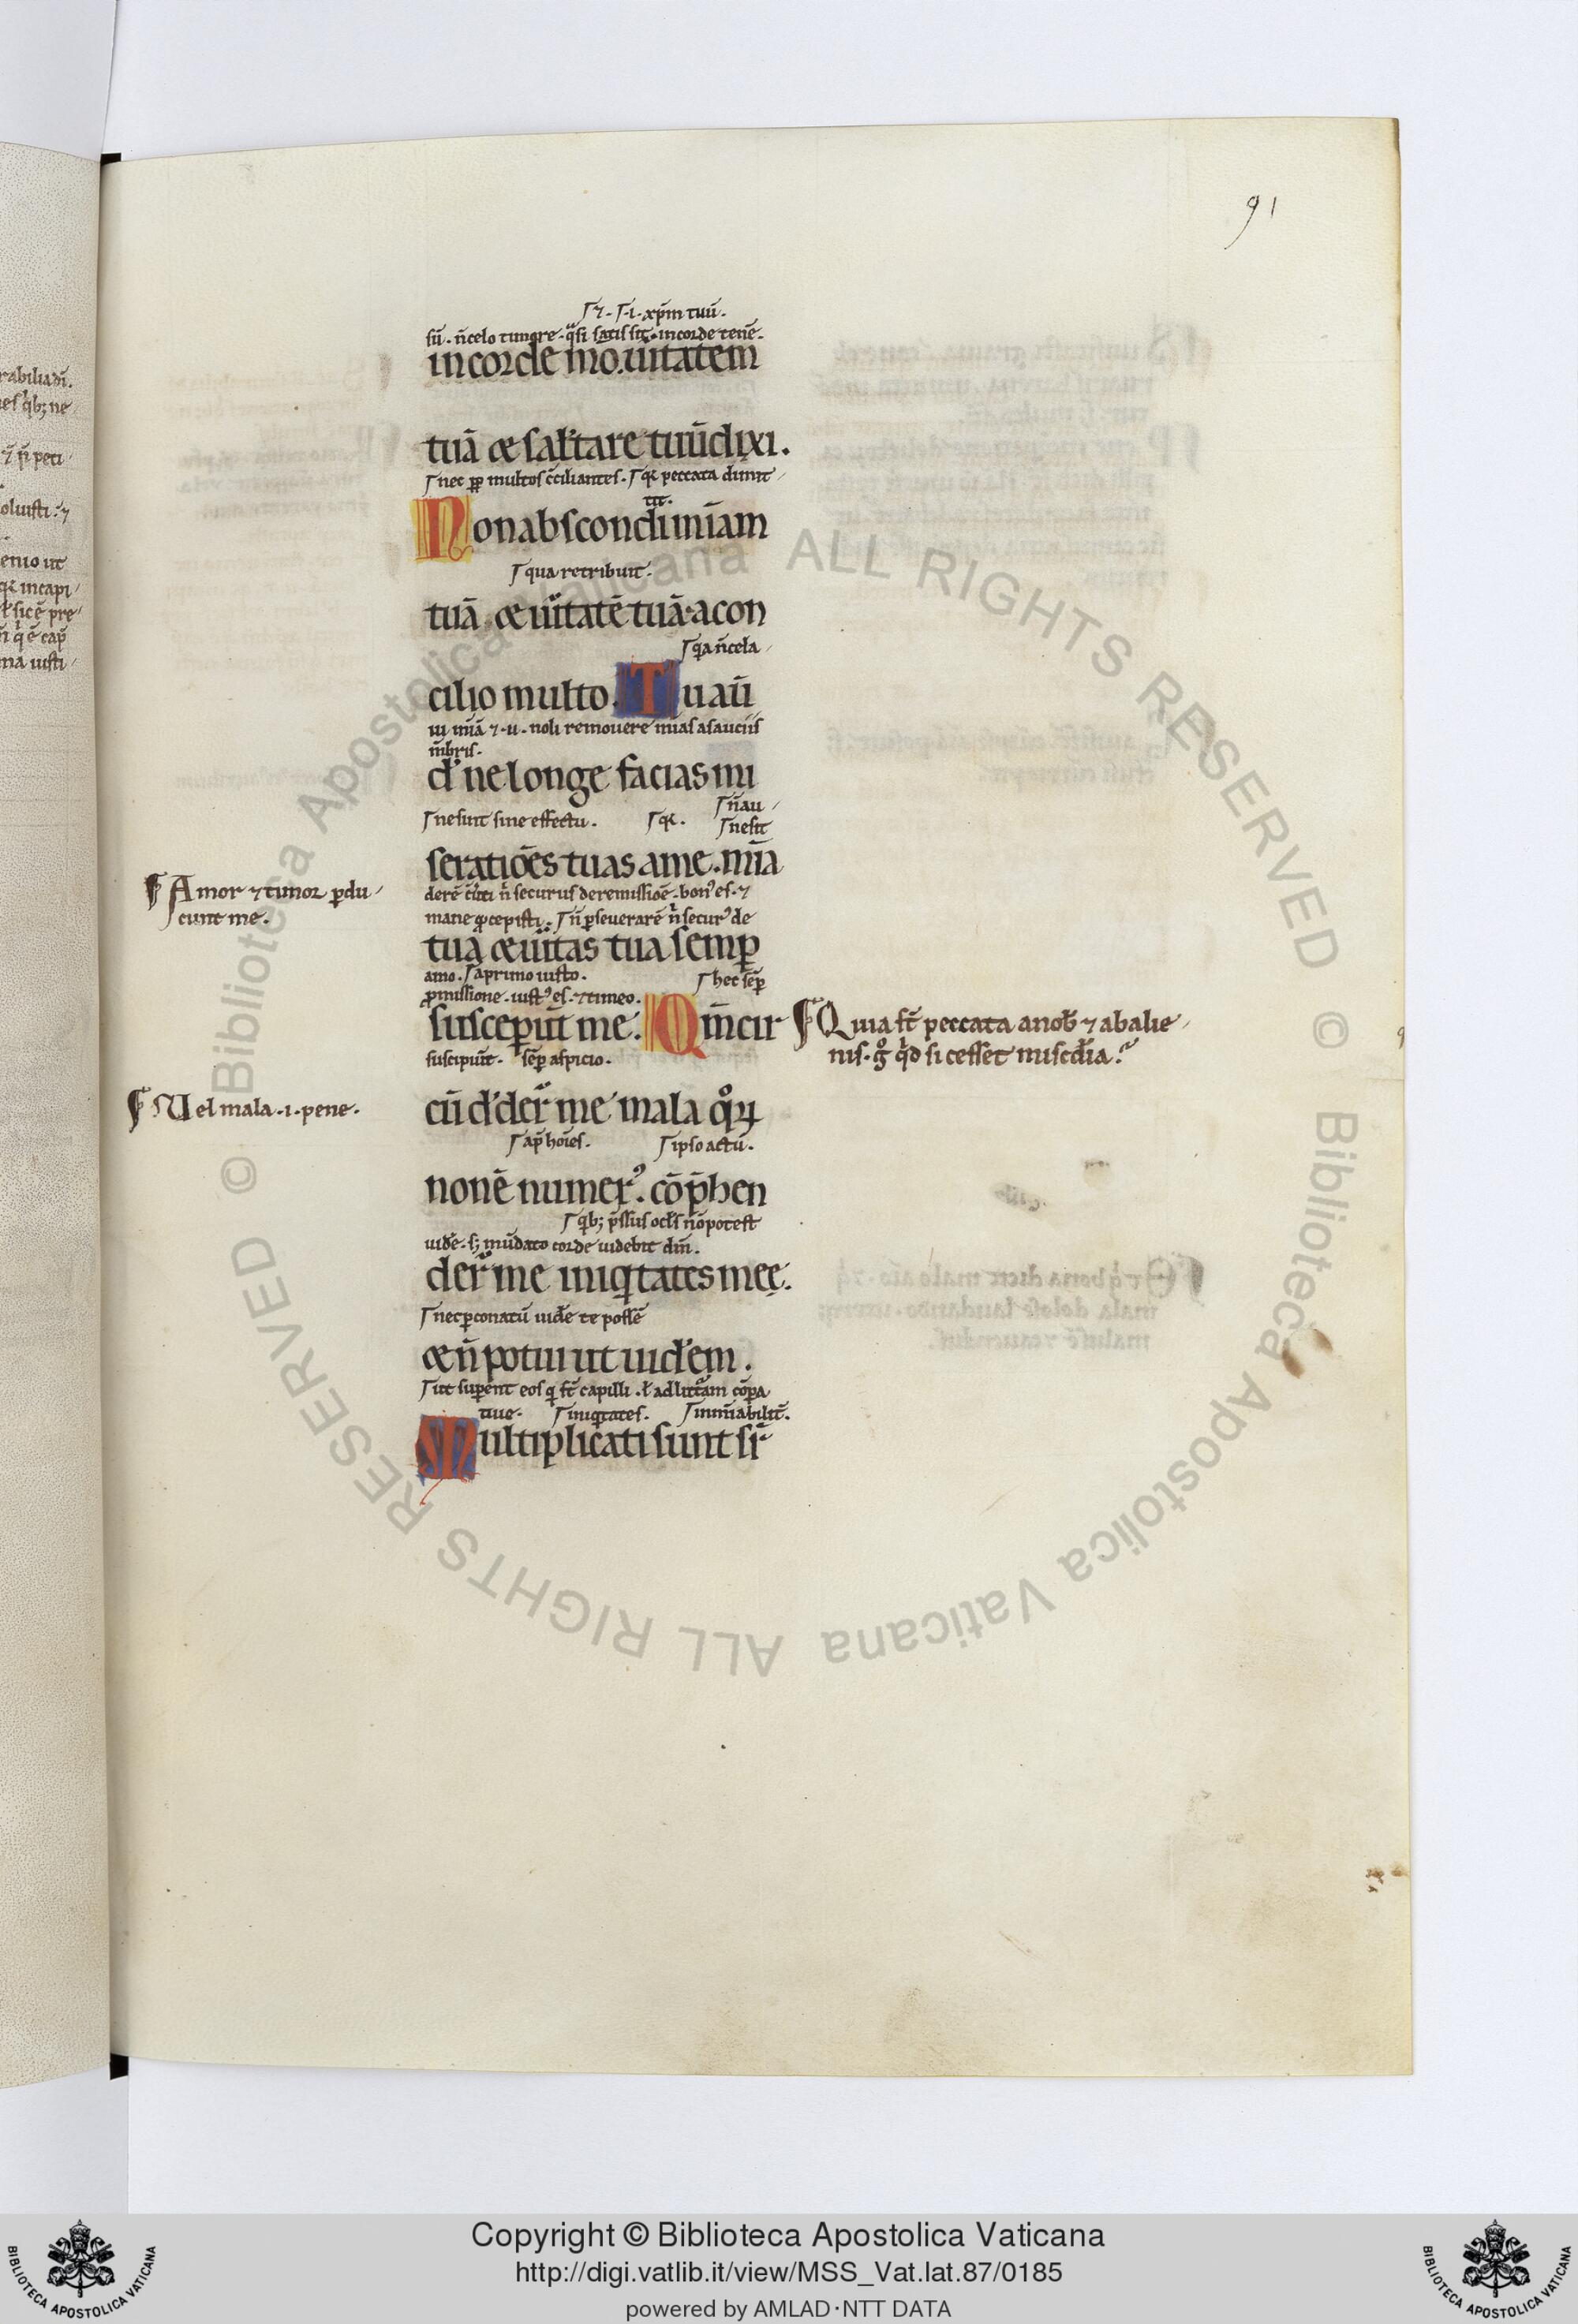 91
⁊ · ·i· xp̄m tuū·
sū· n̄ celo timore· qͣsi satis sit· in corde tenē·
in corde mo. uitatem
tuā & saƚtare tuū dixi.
nec p̄p multos ɔciliantes· qꝛ peccata dimit
tit·
Non abscondi mīam
qua retribuit·
tuā & uitatē tuā· a con
qͥa n̄ cela
cilio multo. Tu aū
ui mīā ⁊ ·u· noli remouere mīas a sauciis
mēbris·
dˀ ne longe facias mi
n̄ au
ne sint sine effectu· qꝛ· ne sit
seratiōes tuas a me. mīa
derē cū̄ti n̄ securus de remissiōe· bonꝰ es· ⁊
mane ꝓcepisti· n̄ ꝑseuerarē n̄ securꝰ de
tua & uitas tua semꝑ
amo· a primo iusto· hec sēꝑ
ꝓmissione· iustꝰ es· ⁊ timeo·
susceper̄t me. Qm̄ cir
suscipiūt· sēꝑ aspicio·
cū dˀ der̄ me mala qͦꝝ
ap̄ hoīes· ipso actu·
non ē numerꝰ. cōp̄hen
qͥbꝫ p̄ssus ocƚs nō potest
uidē· sꝫ mūdato corde uidebit dm̄·
der̄ me iniqͥtates meę.
nec ꝑ conatū uidˀe te possē
& n̄ potui ut uidˀem.
ut suꝑent eos qͥ st̄ capilli· ƚ ad litt̄am cōꝑa
tiue· iniqͥtates· innūabilit̄·
Multiplicati sunt sr̄
Amor ⁊ timor ꝑdu
cunt me·
Vel mala ·i· pene·
Quia st̄ peccata a nob̄ ⁊ ab alie
nis· gͦ qͥd si cesset misc̄dia?
Copyright © Biblioteca Apostolica Vaticana
http://digi.vatlib.it/view/MSS_Vat.lat.87/0185
powered by AMLAD·NTT DATA
BIBLIOTECA APOSTOLICA VATICANA
BIBLIOTECA APOSTOLICA VATICANA
© Biblioteca Apostolica Vaticana ALL RIGHTS RESERVED © Biblioteca Apostolica Vaticana ALL RIGHTS RESERVED